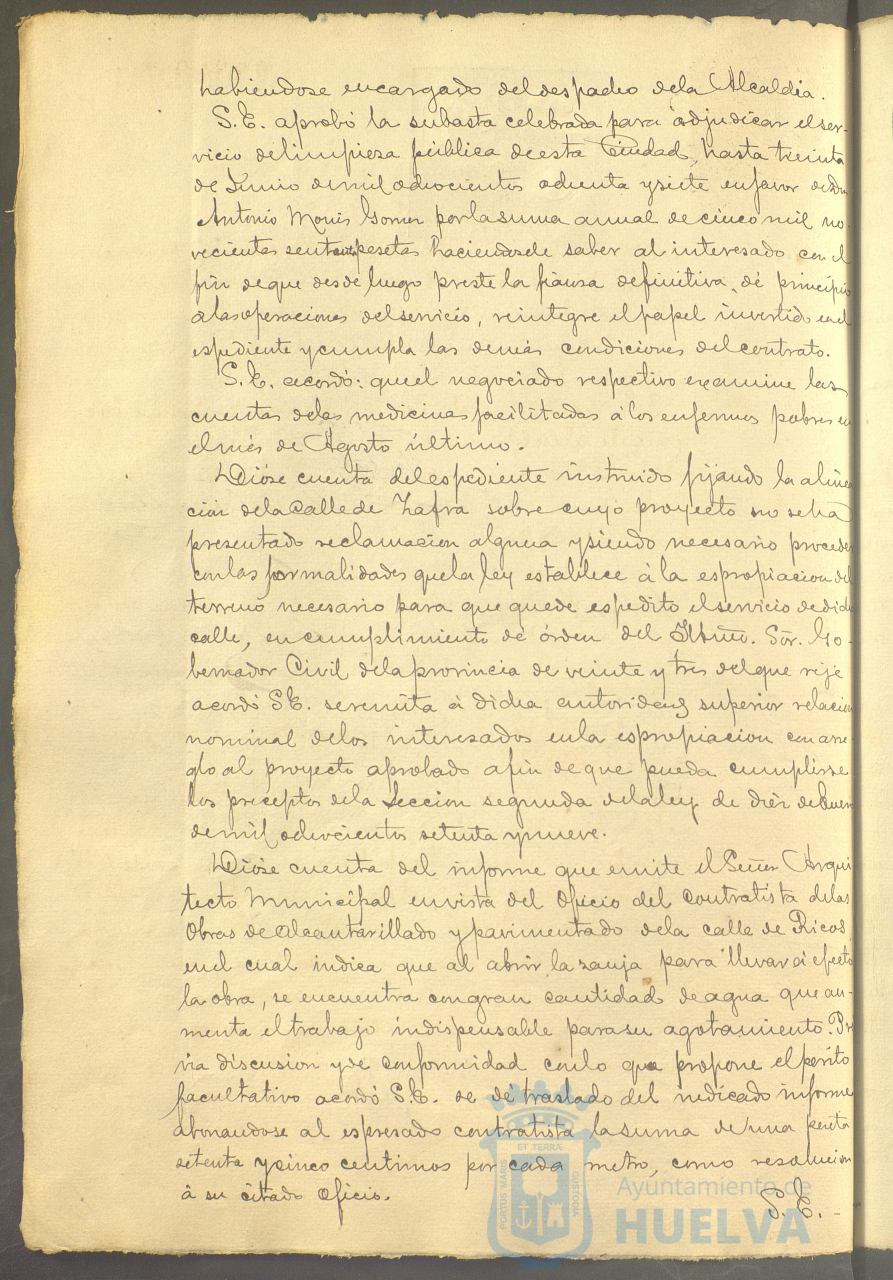 habiendose encargado del despacho de la Alcaldia.
S.E. aprobó la subasta celebrada para adjudicar el ser-
vicio de limpieza pública de esta Ciudad, hasta treinta
de Junio de mil ochocientos ochenta y siete en favor de Don
Antonio Monis Gomez por la suma anual de cinco mil no-
vecientas pesetas haciendosele saber al interesado con el
fin de que desde luego preste la fianza definitiva, dé principio
a las operaciones del servicio, reintegre el papel invertido en el
espediente y cumpla las demás condiciones del contrato.
S.E. acordó: que el negociado respectivo examine las
cuentas de las medicinas facilitadas á los enfermos pobres en
el mes de Agosto último.
Dióse cuenta del espediente instruido fijando la alinea
ción de la Calle de Zafra sobre cuyo proyecto no se ha
presentado reclamacion alguna y siendo necesario proceder
con las formalidades que la ley establece á la espropiacion del
terreno necesario para que quede espedito el servicio de dicha
calle, en cumplimiento de órden del Iltmo. Sór. Go-
bernador Civil de la provincia de veinte y tres del que rije
acordó S.E. se remita á dicha autoridad superior relacion
nominal de los interesados en la espropiacion con arre
glo al proyecto aprobado a fin de que pueda cumplirse
los preceptos de la Seccion segunda de la ley de diez de Enero
de mil ochocientos setenta y nueve.
Dióse cuenta del informe que emite el Señor Arqui
tecto Municipal en vista del Oficio del Contratista de las
Obras de Alcantarillado y pavimentado de la calle de Ricos
en el cual indica que al abrir la zanja para llevar á efecto
la obra, se encuentra con gran cantidad de agua que au-
menta el trabajo indispensable para su agotamiento. Pré
via discusion y de conformidad con lo que propone el perito
facultativo acordó S.E. se dé traslado del indicado informe
abonandose al espresado contratista la suma de una peseta
setenta y cinco centimos por cada metro, como resolucion
á su citado oficio.
S.E.-
PORTUS MARIS
ET TERRÆ
CUSTODIA
Ayuntamiento de
HUELVA